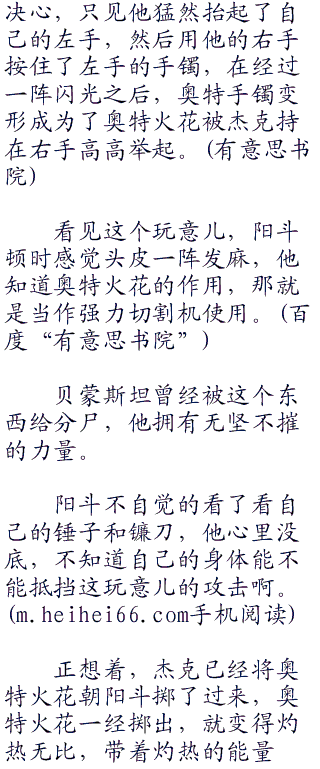 决心，只见他猛然抬起了自
己的左手，然后用他的右手
按住了左手的手镯，在经过
一阵闪光之后，奥特手镯变
形成为了奥特火花被杰克持
在右手高高举起。(有意思书
院)
看见这个玩意儿，阳斗
顿时感觉头皮一阵发麻，他
知道奥特火花的作用，那就
是当作强力切割机使用。(百
度“有意思书院”)
贝蒙斯坦曾经被这个东
西给分尸，他拥有无坚不摧
的力量。
阳斗不自觉的看了看自
己的锤子和镰刀，他心里没
底，不知道自己的身体能不
能抵挡这玩意儿的攻击啊。
(m.heihei66.com手机阅读)
正想着，杰克已经将奥
特火花朝阳斗掷了过来，奥
特火花一经掷出，就变得灼
热无比，带着灼热的能量